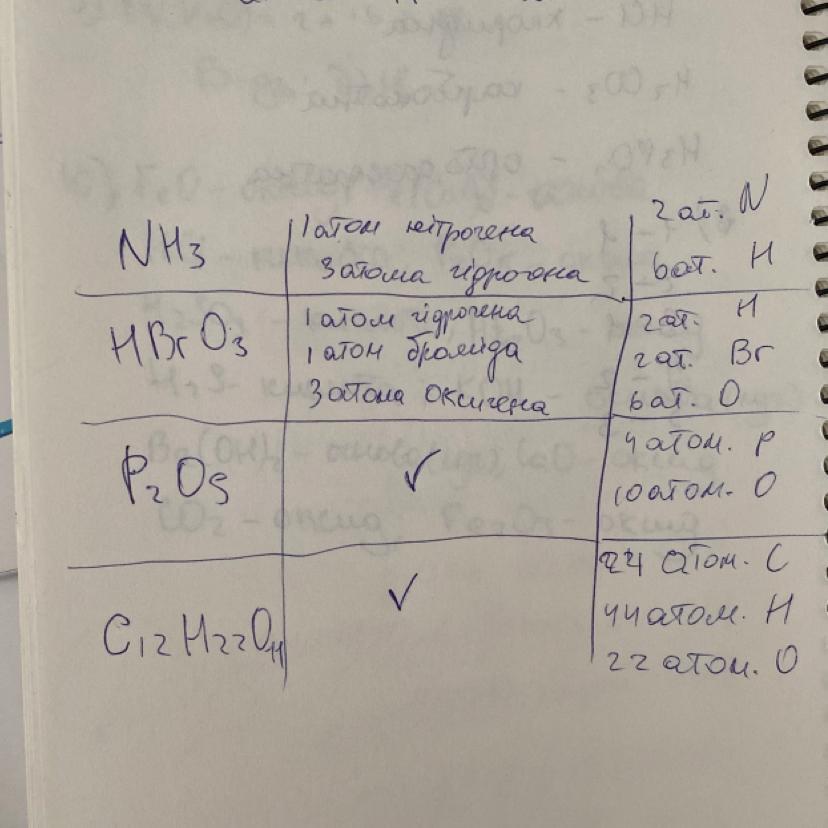 NH3
1 атом нітрогена
3 атома гідрогена
2 ат. N
6 ат. H
HBrO3
1 атом гідрогена
1 атом броміда
3 атома оксигена
2 ат. H
2 ат. Br
6 ат. O
P2O5
✓
4 атом. P
10 атом. O
C12H22O11
✓
24 атом. C
44 атом. H
22 атом. O